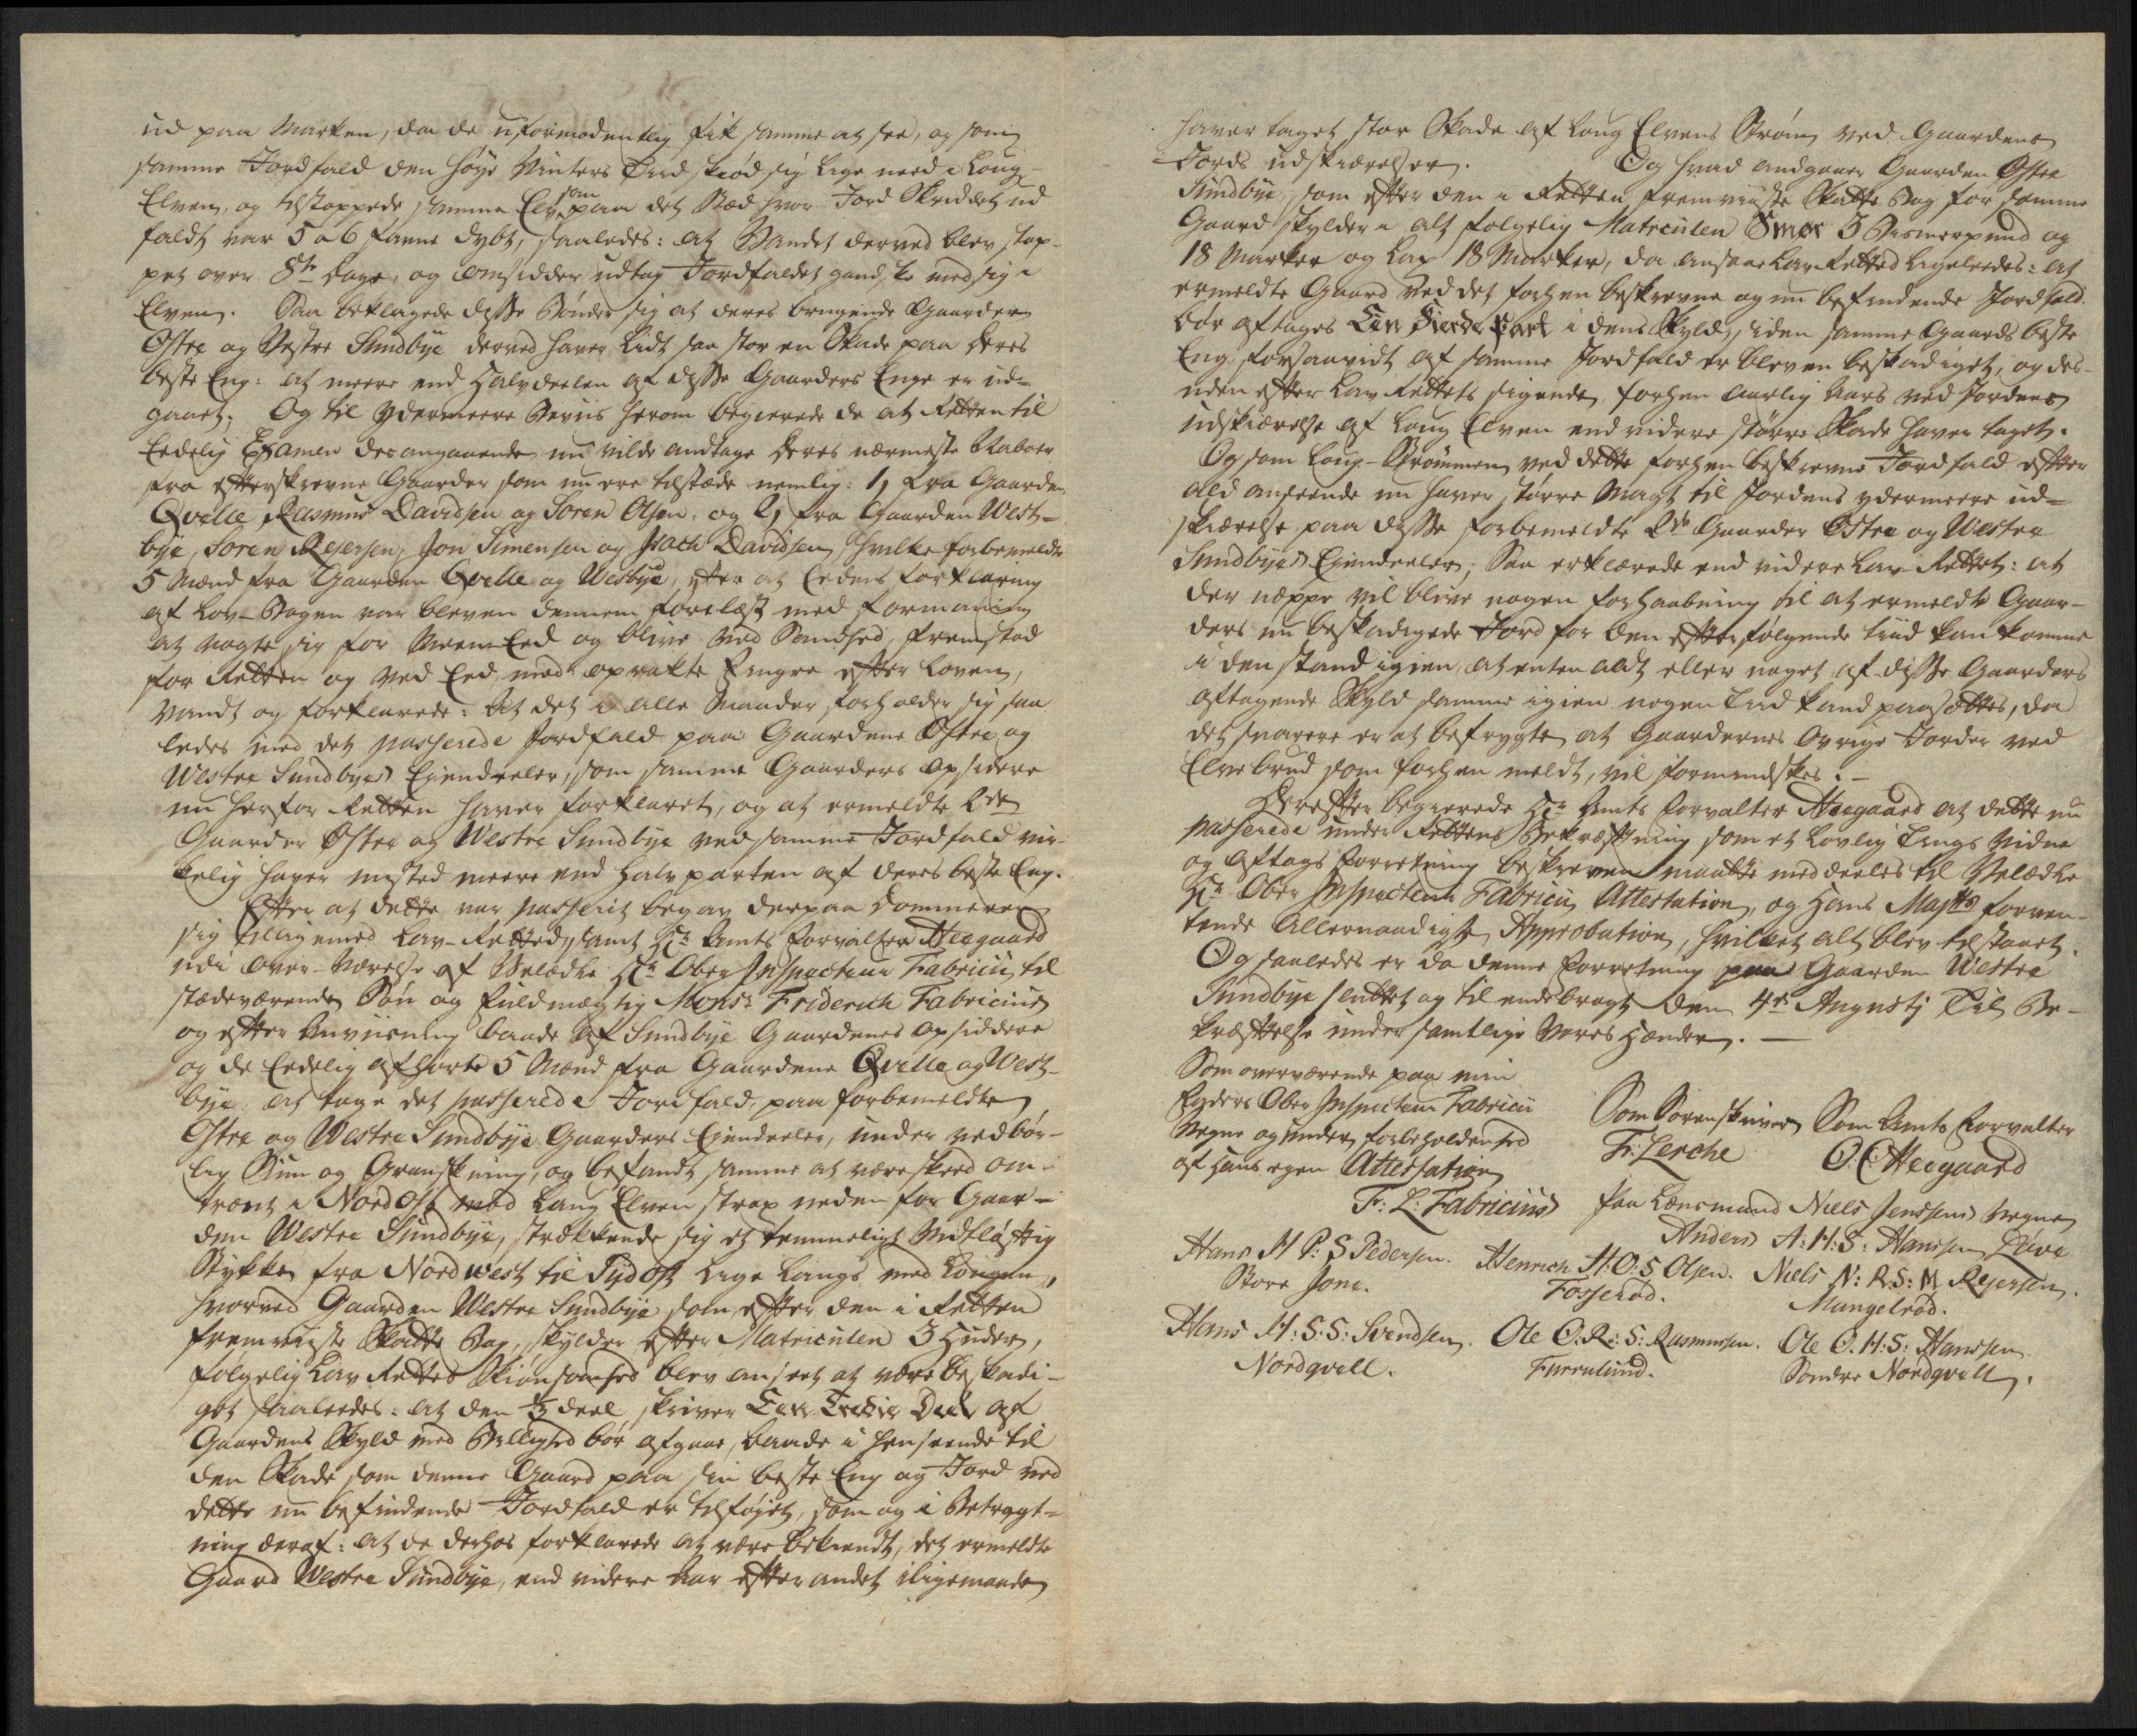 ud paa Marken, da de uformodentlig fik samme at see, og som
samme Jordfald den høye Winters Tiid skiød sig lige need i Loug-
Elven, og tilstoppede samme Elv som paa det Stæd hvor Jord Skriddet ud
faldt var 5 a 6 favne dybt, saaledes: at Vandet derved blev stop-
pet over 8te dage, og omsidder udtog Jordfaldet gandske med sig i
Elven. Saa beklagede disse Bønder sig at deres brugende Gaarder
Østre og Vestre Sundbye derved haver Lidt saa stor en Skade paa deres
beste Eng: at meere end Halvdeelen af disse Gaarders Enge er ud-
gaaet; Og til ydermeere Beviis herom begierede de at Retten til
Eedelig Examen desangaaende nu vilde andtage deres nærmeste Naboer
fra efterskrevne Gaarder som nu ere tilstæde nemlig: 1, fra Gaarden
Qvelle Rasmus Davidsen og Soren Olsen, og 2, fra Gaarden West-
bye, Soren Rejersen, Jon Simensen og Isach Davidsen, hvilke forbemeldte
5 Mænd fra Gaarden Qvelle og Wesbye, efter at Eedens forklaring
af Lov-Bogen var bleven dennem forelæst med formaning
at vogte sig for Meen-Eed og blive ved Sandhed, fremstod
for Retten og ved Eed med oprakte Fingre efter Loven,
vandt og forklarede: At det i alle Maader forholder sig saa
ledes med det passerede Jordfald paa Gaardene Østre og
Westre Sundbyes Eiendeeler, som samme Gaarders opsidere
nu her for Retten haver forklaret, og at ermeldte 2de
Gaarder Østre og Westre Sundbye ved samme Jordfald vir-
kelig haver misted meere end Halvparten af deres beste Eng.
Efter at dette var passerit begav derpaa Dommeren
sig tilligemed Lav-Retted, samt Hr Amts Forvalter Heegaard
udi over-værelse af Velædle Hr Ober Inspecteur Fabricii til
stædeværende Søn og Fuldmægtig Monsr Friderich Fabricius
og efter Anviisning baade af Sundbye Gaardenes opsiddere
og de Eedelig afhørte 5 Mænd fra Gaardene Qvelle og West-
bye at tage det passerede Jordfald paa forbemeldte
Østre og Westre Sundbye Gaarders Eiendeeler, under vedbør-
lig Siun og Granskning, og befandt samme at være skeed om-
trent i NordOst ved Laug Elven strax neden for Gaar-
den Westre Sundbye, strækkende sig et temmeligt vidtløftig
Stykke fra Nordwest til SydOst lige langs med Lougen,
hvorved Gaarden Westre Sundbye som efter den i Retten
fremviiste Skatte Bog, skylder efter Matriculen 3 Huder,
følgelig Lav Rettes Skiønsomhed blev anseet at være beskadi-
get saaleedes: at den 1/3 deel, skriver Een Tredie Deel af
Gaardens Skyld med Billighed bør afgaae, baade i henseende til
den Skade som denne Gaard paa sin beste Eng og Jord ved
dette nu befindende Jordfald er tilføyet, som og i Betragt-
ning deraf: at de derhos forklarede at være bekiendt, det ermeldte
Gaard Westre Sundbye, end videre Aar efter andet iligemaade
haver taget stor Skade af Loug Elvens Strøm ved Gaardens
Jords udskiærelser. Og hvad andgaaer Gaarden Østre
Sundbye, som efter den i Retten fremviiste Skatte Bog for samme
Gaard skylder i alt følgelig Matriculen Smør 3 Bismerpund og
18 Marker og Lax 18 Marker, da ansaae Lav-Retted ligeleedes: at
ermeldte Gaard ved det forhen beskrevne og nu befindende Jordfald
bør aftages Een Fierde Part i dens Skyld, siden samme Gaards beste
Eng forsaavidt af samme Jordfald er bleven beskadiget, og des-
uden efter Lav-Rettets sigende, forhen aarlig Aars ved Jordens
udskiærelse af Loug Elven end videre større Skade haver taget.
Og som Loug-Strømmen ved dette forhen beskrevne Jordfald efter
ald anseende nu haver større Magt til Jordens ydermeere ud-
skiærelse paa disse forbemeldte 2de Gaarder Østre og Westre
Sundbyes Eiendeeler; Saa erklærede end videre Lav-Rettet: at
der neppe vil blive nogen forhaabning til at ermeldte Gaar-
ders nu beskadigede Jord for den efterfølgende tiid kan komme
i den stand igien, at enten aldt eller noget af disse Gaarders
aftagende Skyld samme igien nogen Tiid kand paasættes, da
det snarere er at befrygte, at Gaardernes øvrige Jorder ved
Elvebrud som forhen meldt, vil formindskes. -
Derefter begierede Hr Amts Forvalter Heegaard at dette nu
passerede under Rettens Bekræftning som et Lovlig Tings Vidne
og Aftags Forretning beskreven maatte meddeeles til Velædle
Hr Ober Inspecteur Fabricii Attestation, og Hans Maytts forven-
tende Allernaadigste Approbation, hvilket alt blev tilstaaet.
Og saaledes er da denne Forretning paa Gaarden Westre
Sundbye sluttet og til ende bragt den 4de Augustj Til Be-
kræftelse under samtlige vores Hænder. -
Som overværende paa min
Faders Ober Inspecteur Fabricii
Vegne og under forbeholdenhed
af hans egen Attestation
Fr: L: Fabricius
Som Sorenskriver
Fr: Lerche
Som Amts Forvalter
O. C Heegaard
Paa Lænsmand Niels Jenssens vegne
Anders A: H: S: Hanssen Løve
Hans H P: S Pedersen. Henrich H. O: S Olsen. Niels N: R: S: Rejersen.
Store Jone. Fosserød. Mungelrød.
Hans H: S: S: Svendsen. Ole O: R: S: Rasmussen. Ole O. H: S: Hanssen
Nordqvell. Furrulund. Søndre Nordqvell.